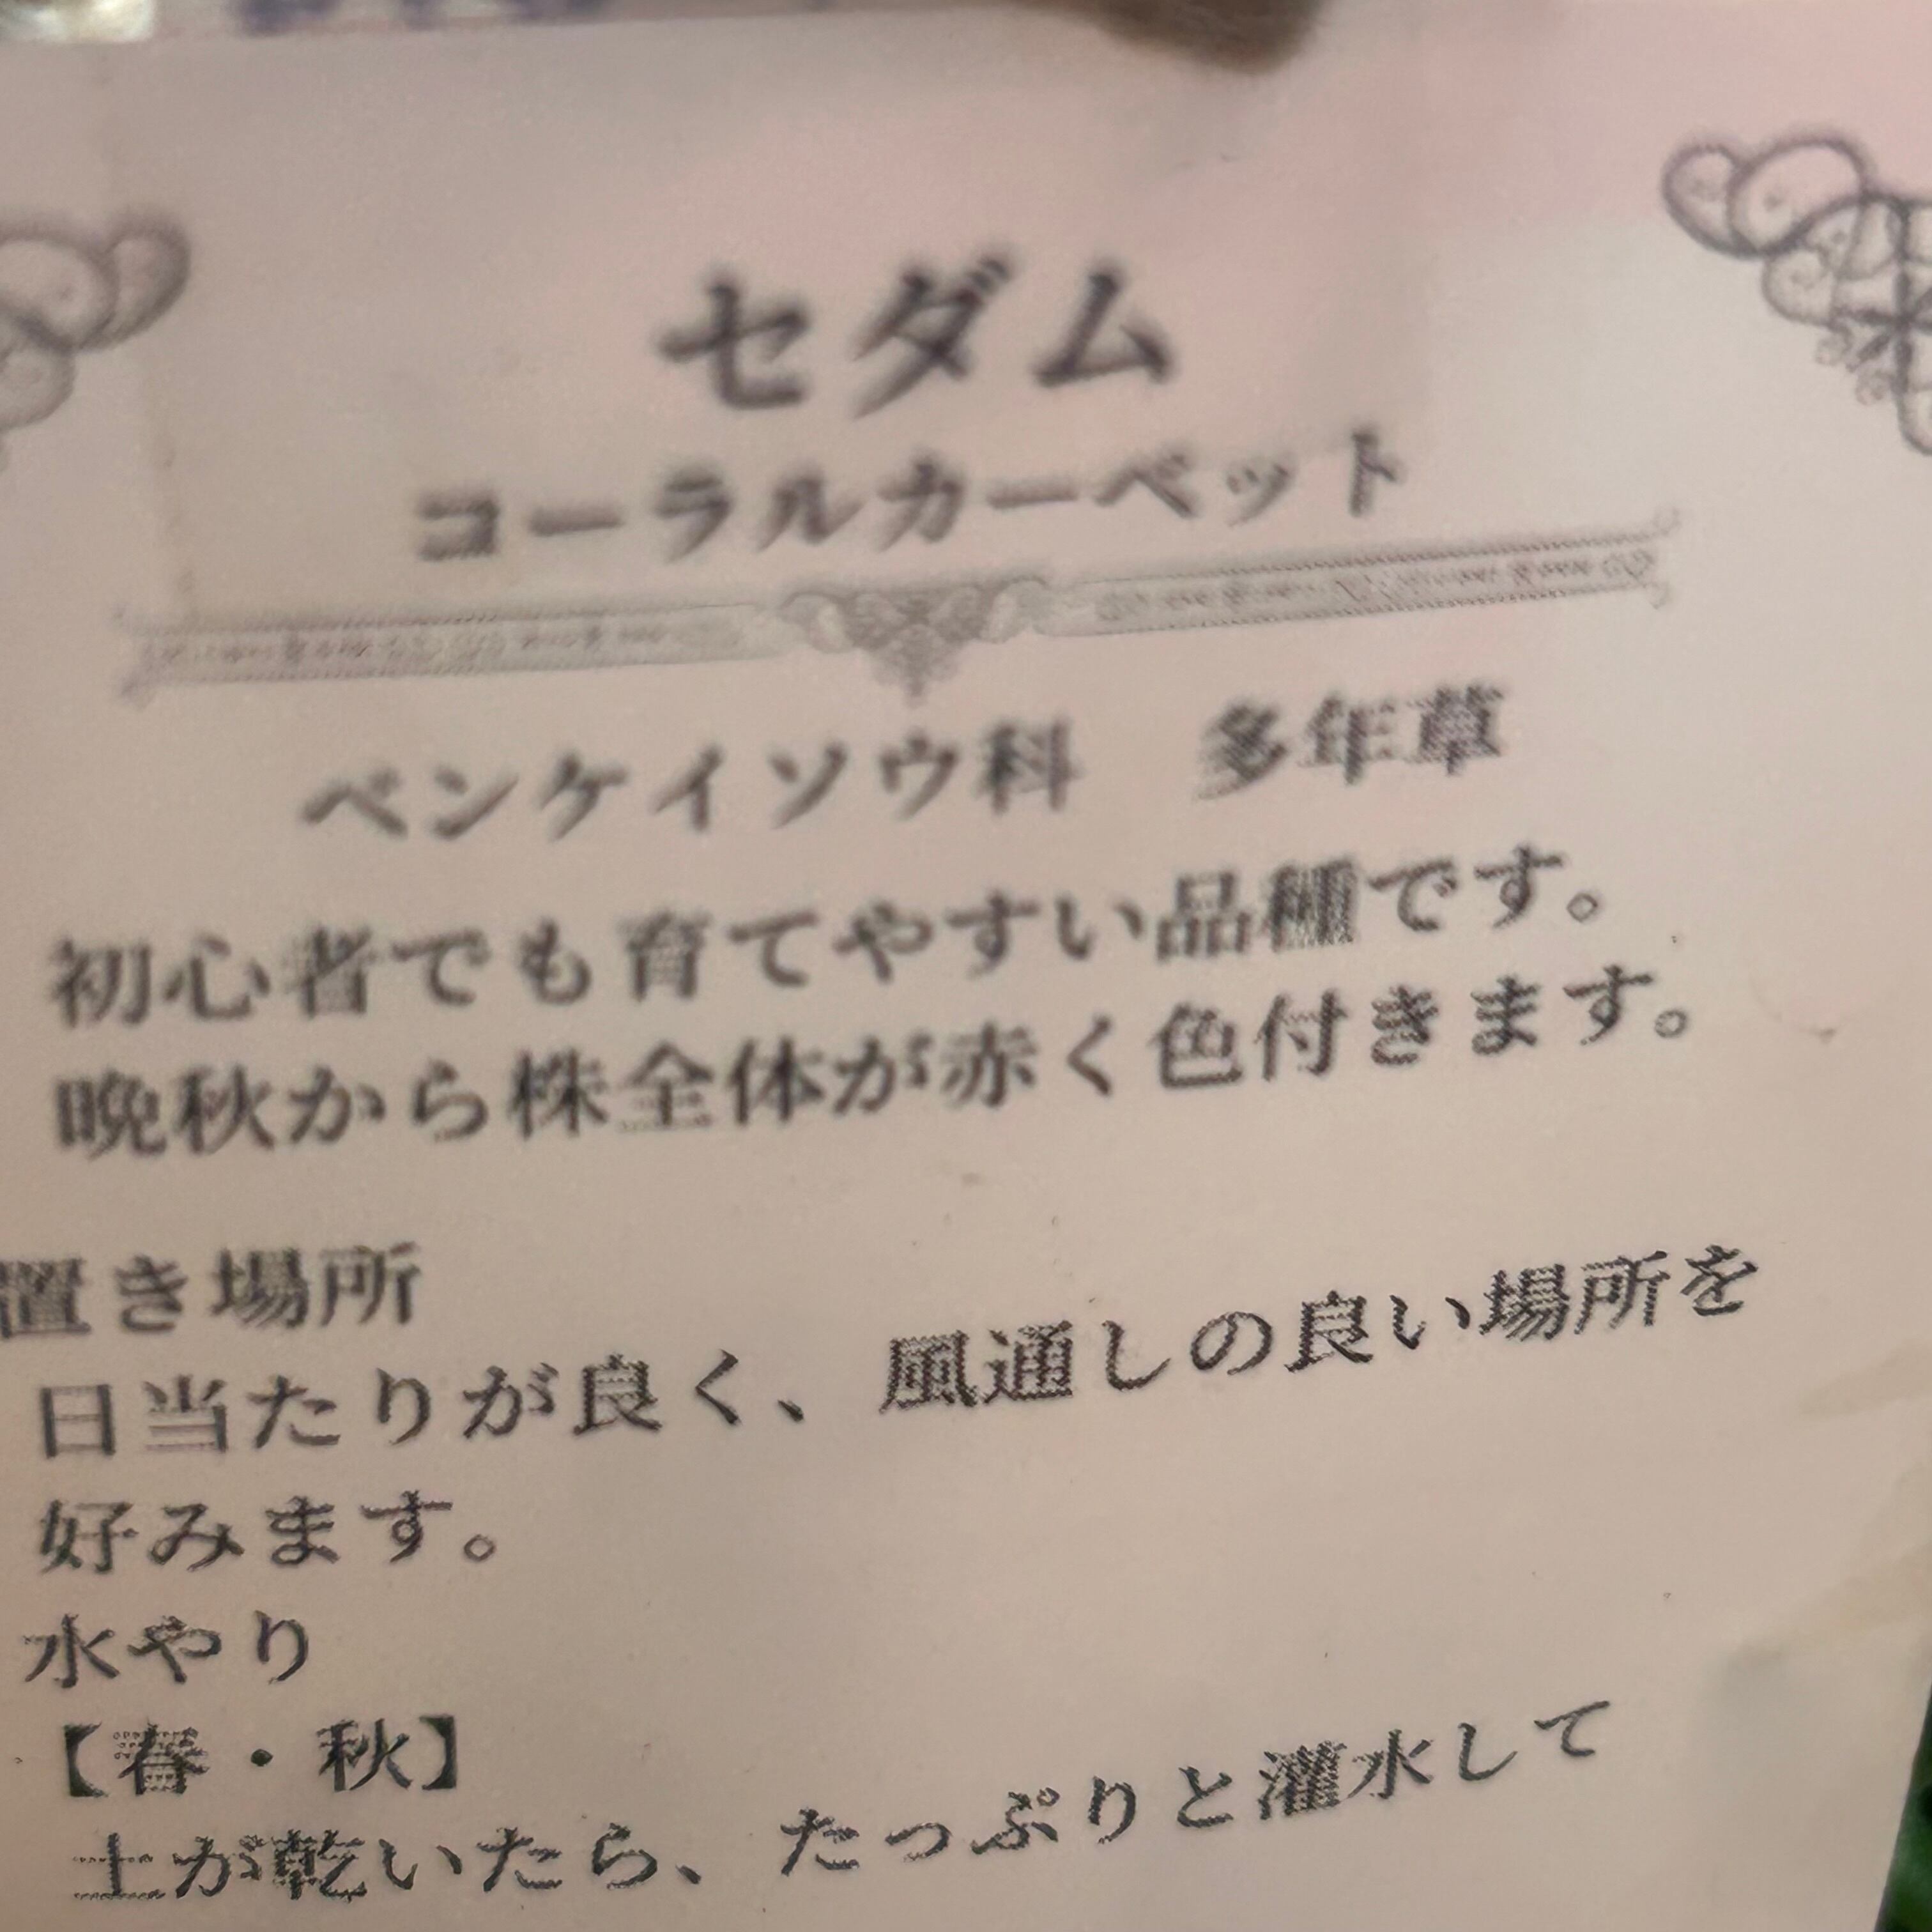 セダム
コーラルカーペット
ベンケイソウ科　多年草
初心者でも育てやすい品種です。
晩秋から株全体が赤く色付きます。
置き場所
日当たりが良く、風通しの良い場所を
好みます。
水やり
【春・秋】
土が乾いたら、たっぷりと灌水して